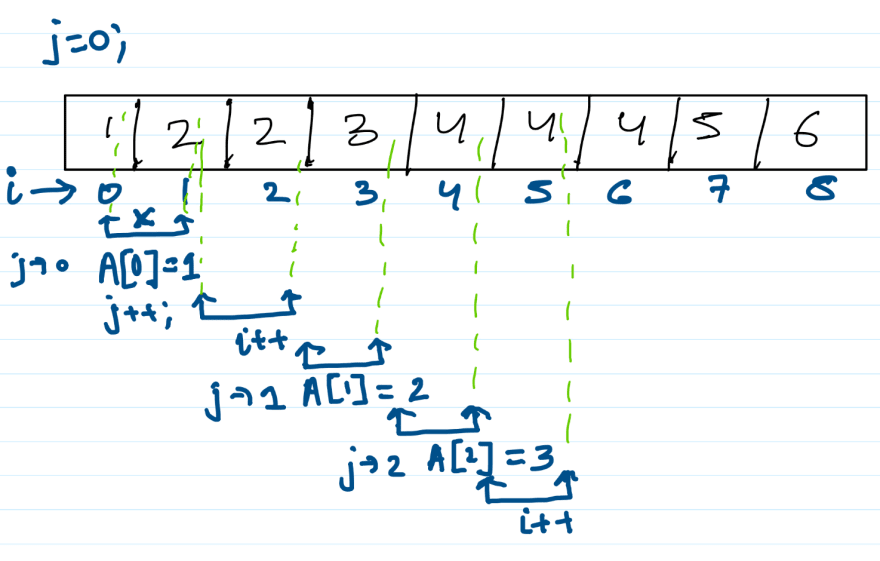 j=0;
1 2 2 3 4 4 4 5 6
i→ 0 1 2 3 4 5 6 7 8
x
j→0 A[0]=1
j++;
i++
j→1 A[1]=2
j→2 A[2]=3
i++